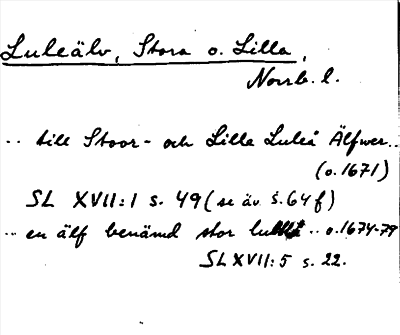 Luleälv, Stora o. Lilla,
Norrb. l.
.. till Stoor- och Lille Luleå Älfwer..
(o.1671)
SL XVII:1 s. 49 (se äv. s. 64 f)
.. en älf benämd stor .. o.1674-79
SL XVII:5 s. 22.